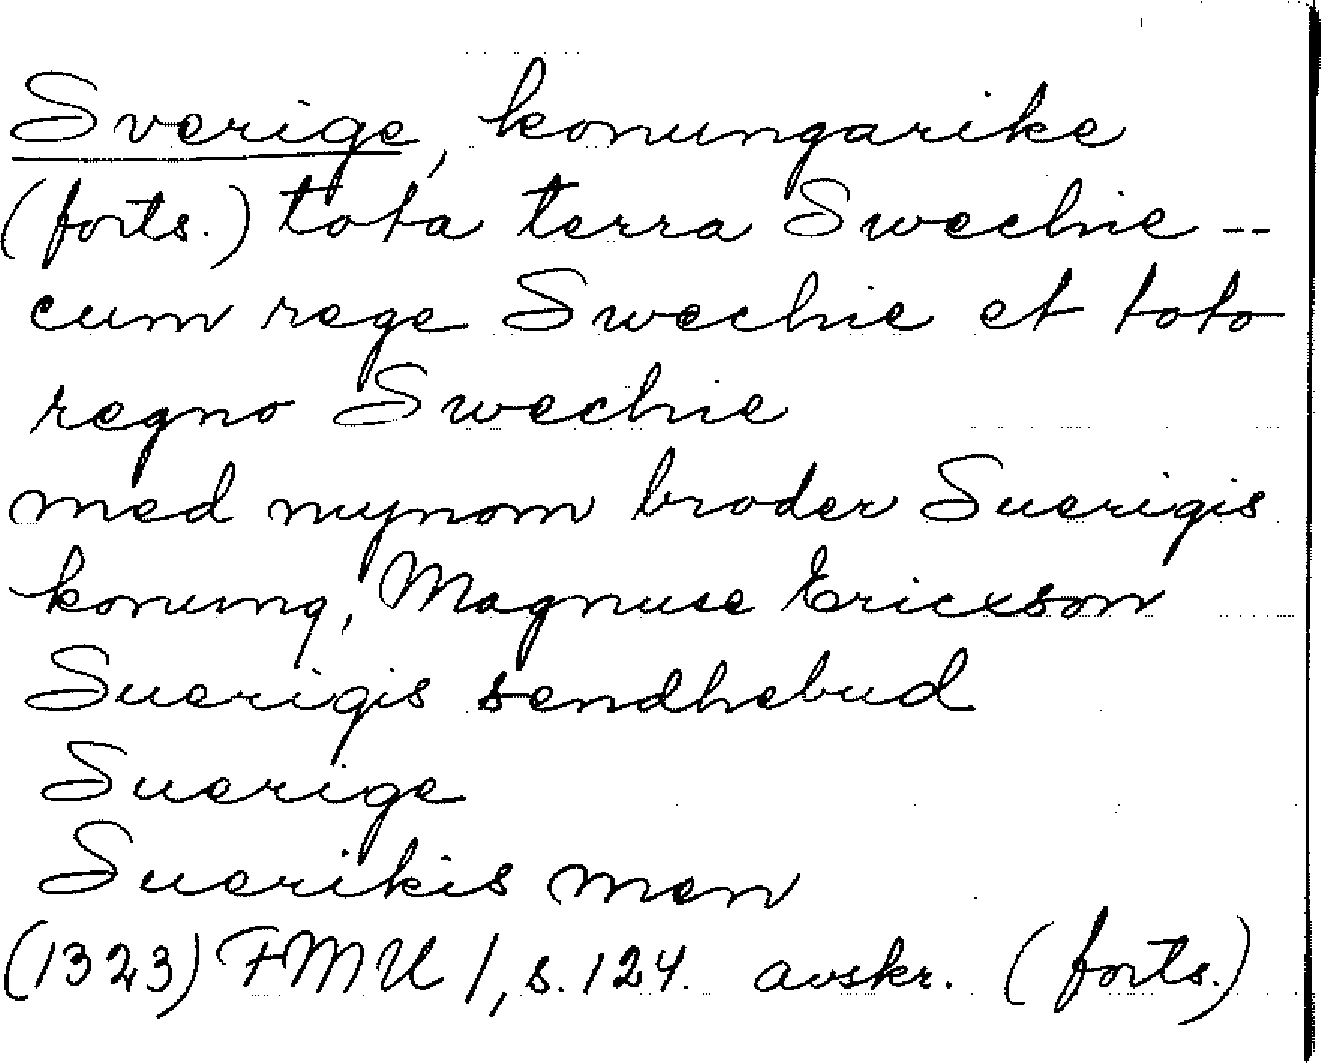 Sverige, konungarike
(forts.) tota terra Swechie --
cum rege Swechie et toto
regno Swechie
med mynom broder Suerigis
konung, Magnuse Ericxson
Suerigis sendhebud
Suerige
Suerikis men
(1323) FMU 1, s. 124. avskr. (forts.)